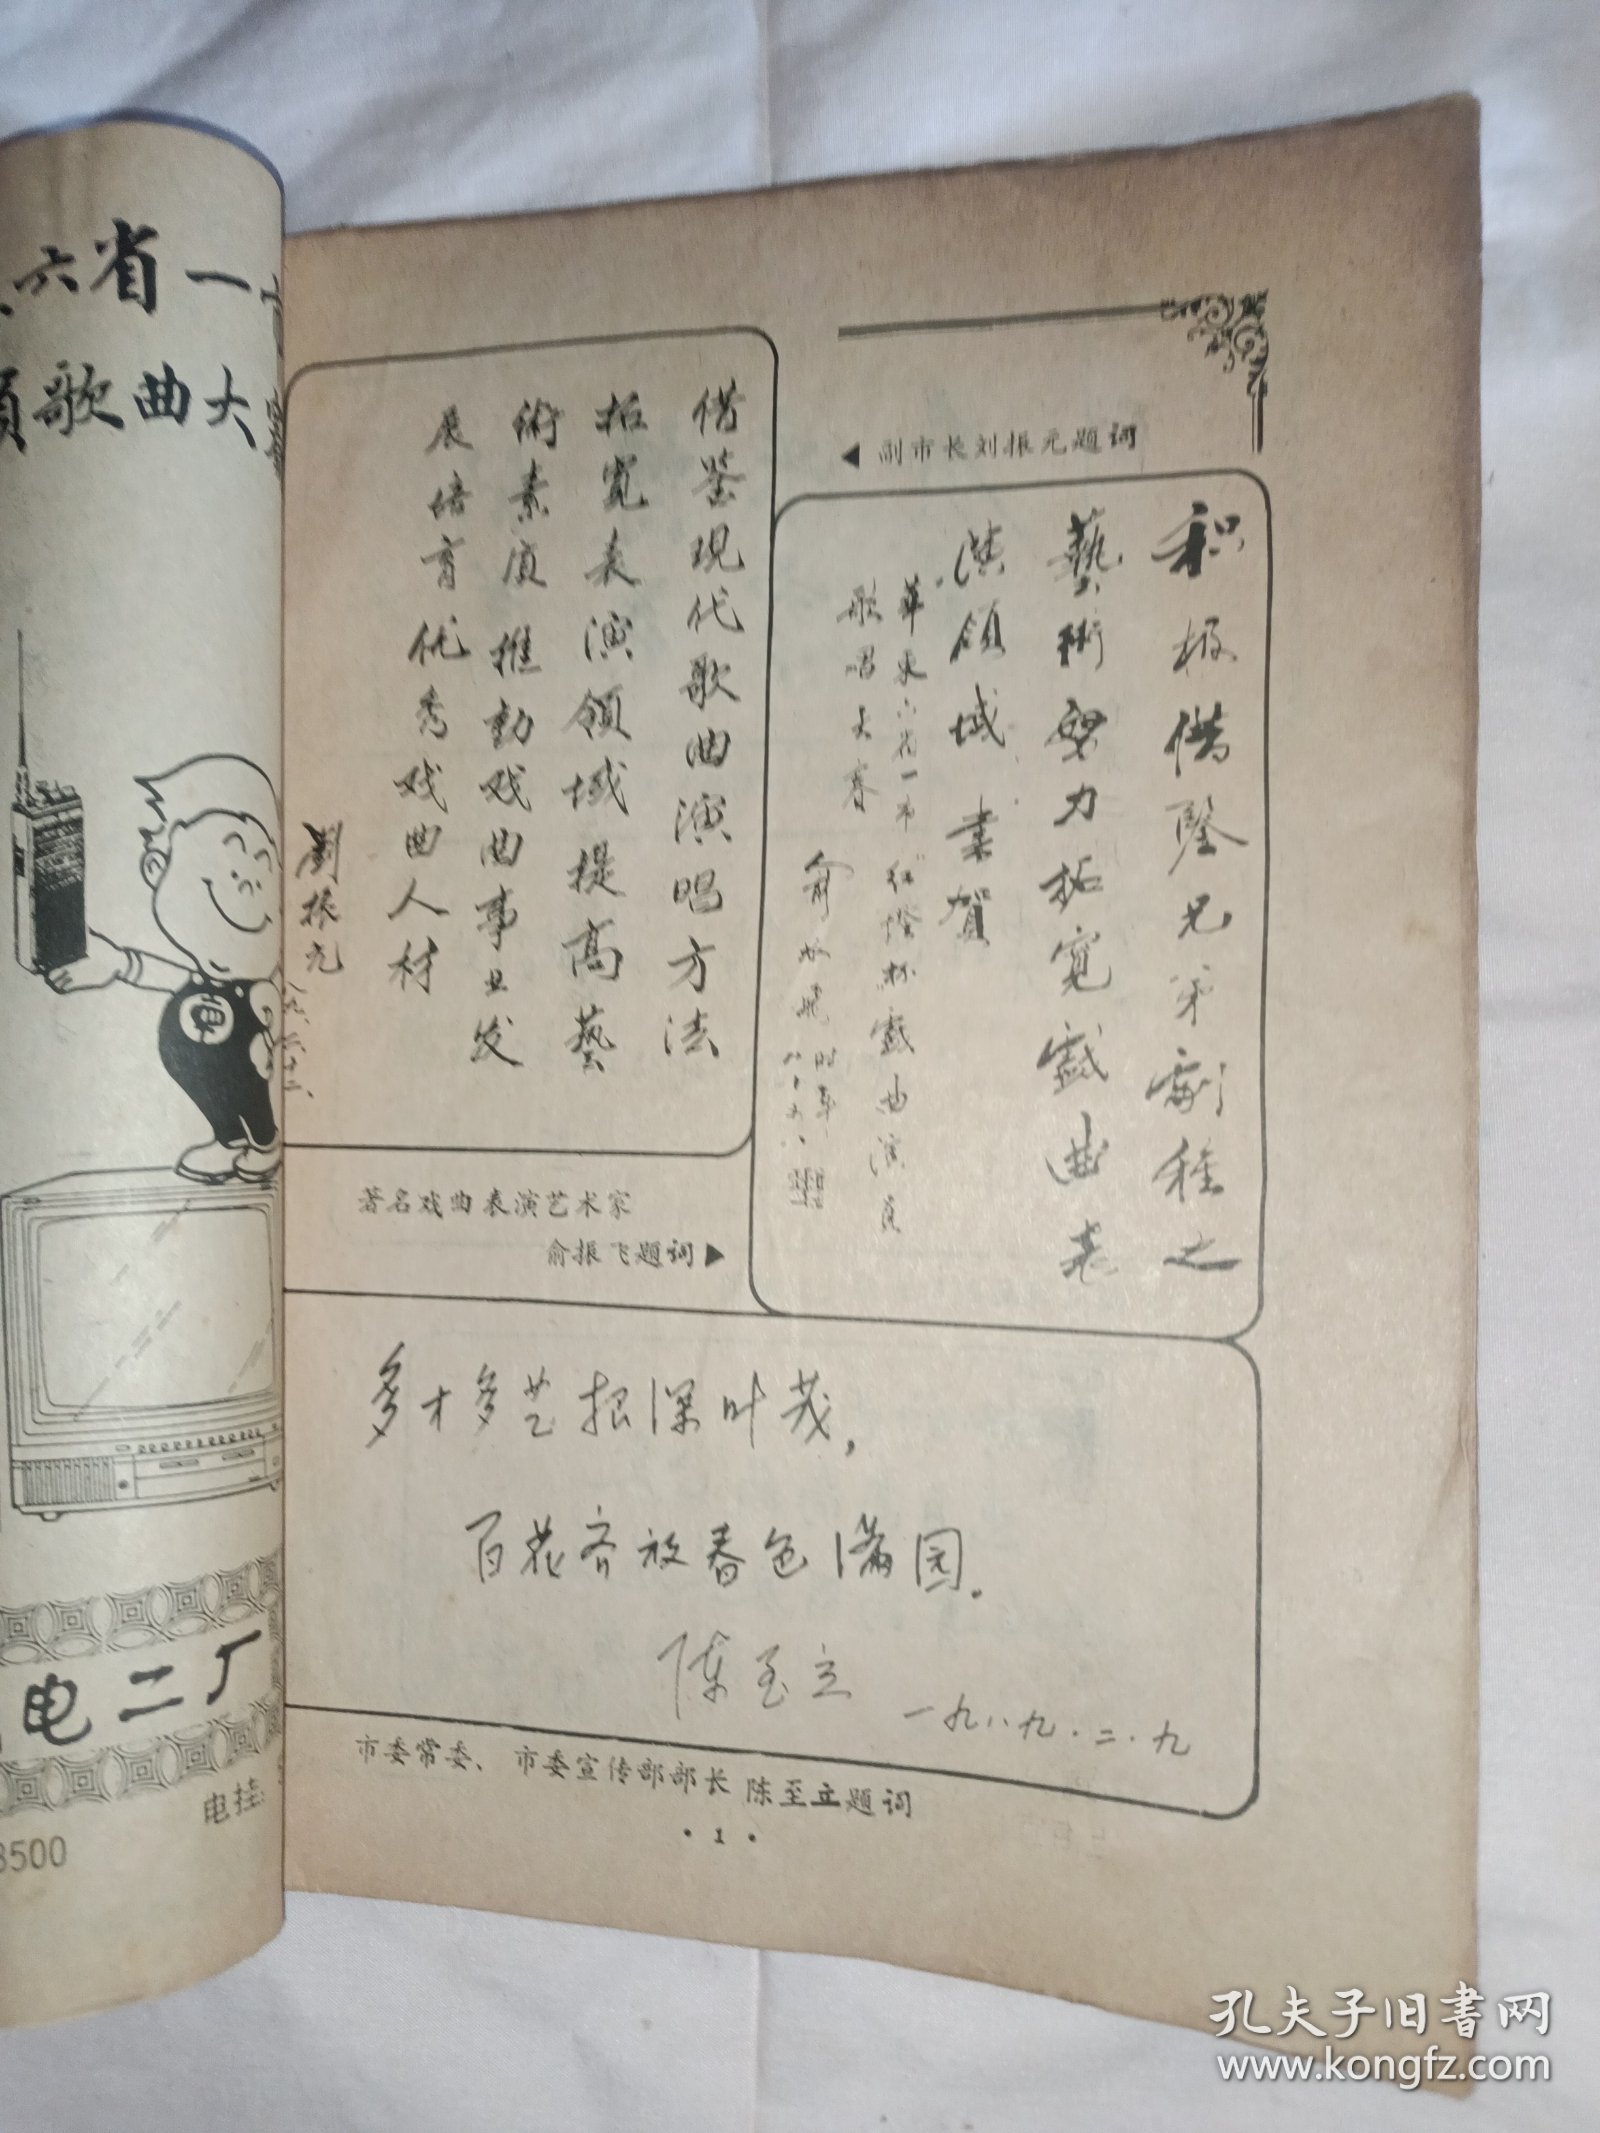 六省一
歌曲大
电二厂
电挂
3500
◀ 副市长刘振元题词
借鉴现代歌曲演唱方法
拓宽表演领域提高艺
術素质推動戏曲事业发
展培育优秀戏曲人材
劉振元
积极借鋻兄弟劇种之
藝術努力拓宽戲曲表
演領域 業賀
華东六省一市红灯杯戲曲演員
歌唱大赛
俞振飛
时年八十八
著名戏曲表演艺术家
俞振飞题词▶
多才多艺根深叶茂，
百花齐放春色满园.
陈至立
一九八九.二.九
市委常委、市委宣传部部长陈至立题词
·1·
孔夫子旧書网
www.kongfz.com